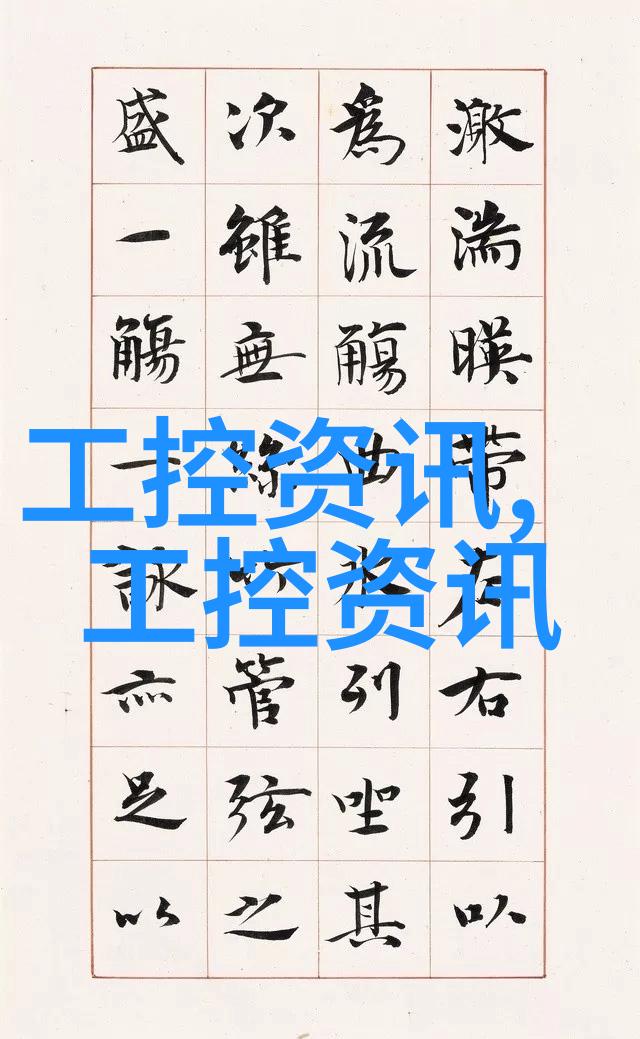 激湍暎帶左右引以
爲流觴曲水列坐其
次雖無絲竹管弦之
盛一觴一詠亦足以
工控资讯,
工控资讯